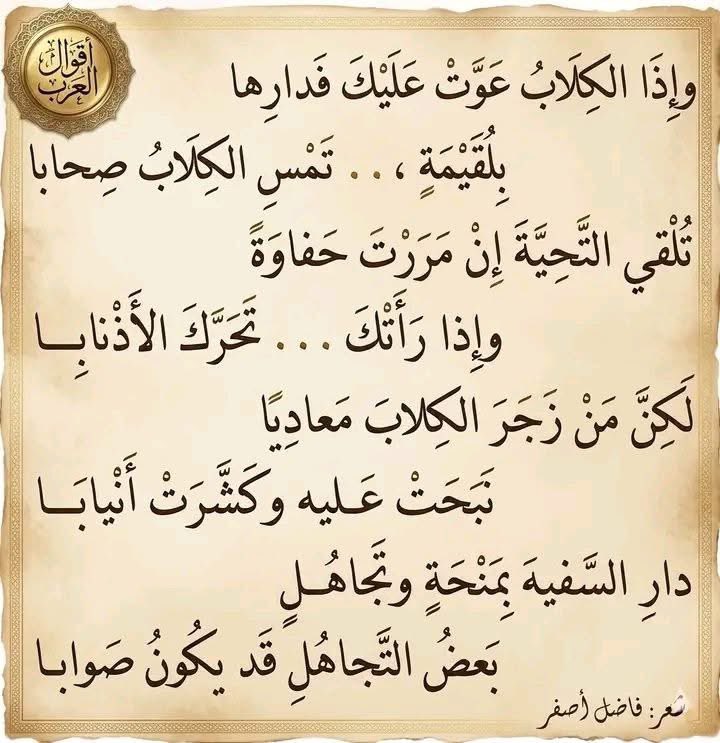 أقوال
العرب
وإِذَا الكِلَابُ عَوَّتْ عَلَيْكَ فَدارِها
بِلُقَيْمَةٍ ، . . تَمْسِ الكِلَابُ صِحابا
تُلْقي التَّحِيَّةَ إِنْ مَرَرْتَ حَفاوَةً
وإِذا رَأَتْكَ . . . تَحَرَّكَ الأَذْنابِــا
لَكِنَّ مَنْ زَجَرَ الكِلابَ مَعادِيًا
نَبَحَتْ عَـليه وكَشَّرَتْ أَنْيابَــا
دارِ السَّفيهَ بِمَنْحَةٍ وتَجاهُــلٍ
بَعضُ التَّجاهُلِ قَد يكُونُ صَوابـا
شعر: فاضل أصفر